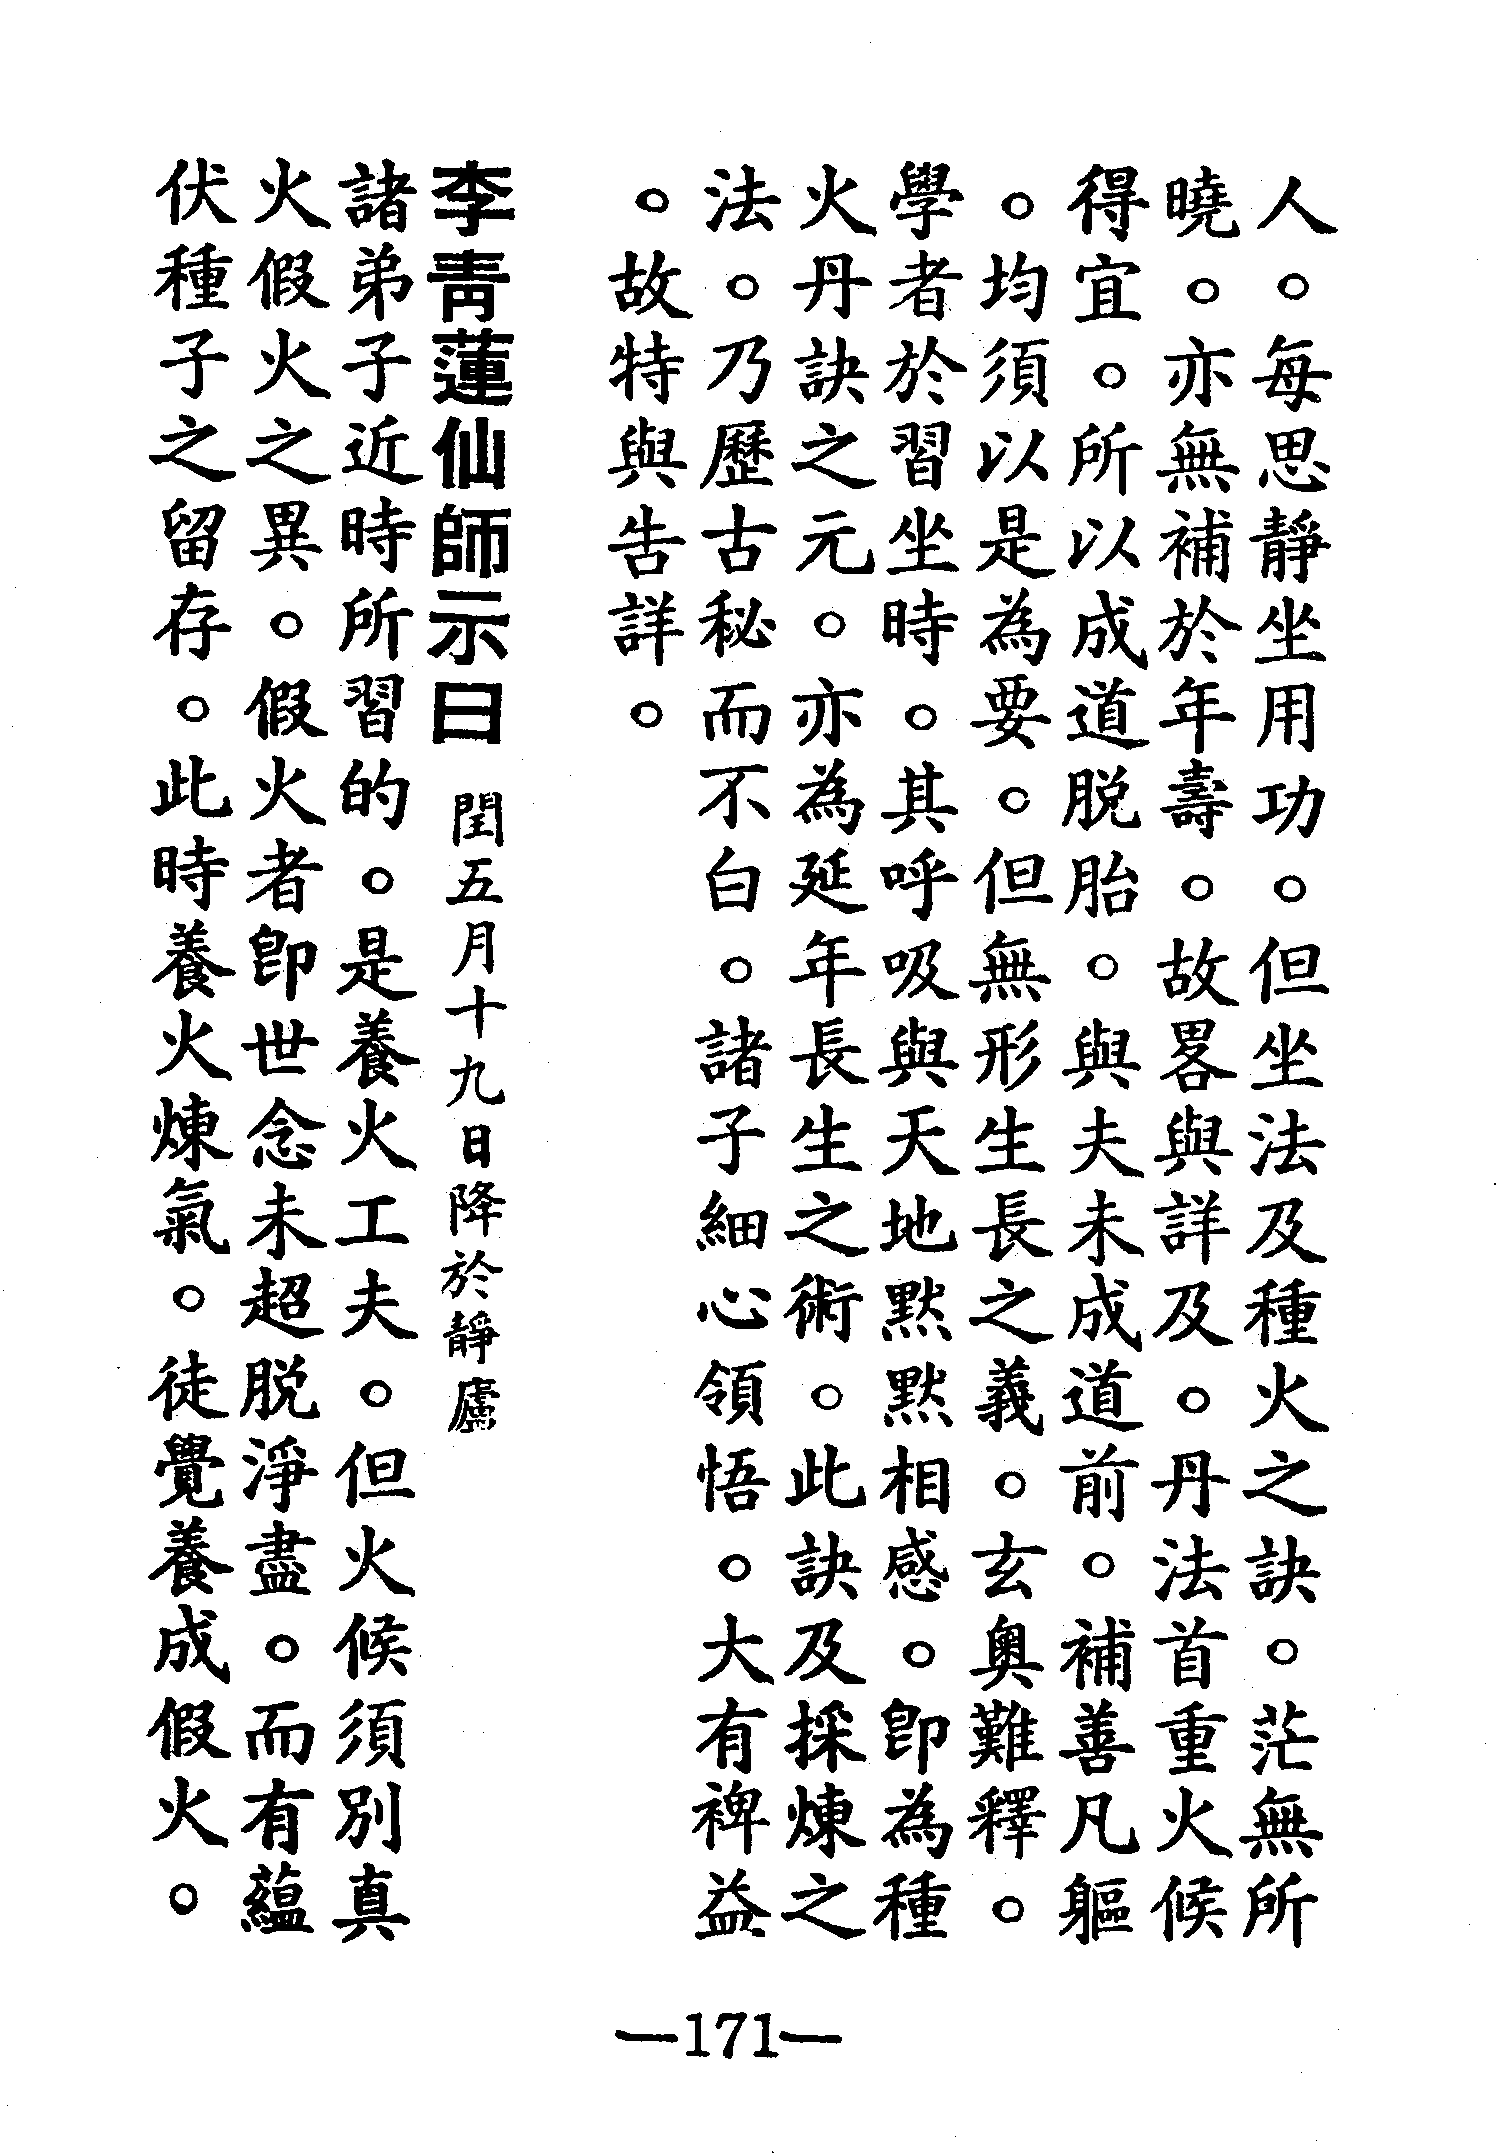 人。每思靜坐用功。但坐法及種火之訣。茫無所
曉。亦無補於年壽。故畧與詳及。丹法首重火候
得宜。所以成道脱胎。與夫未成道前。補善凡軀
。均須以是為要。但無形生長之義。玄奥難釋。
學者於習坐時。其呼吸與天地默默相感。即為種
火丹訣之元。亦為延年長生之術。此訣及採煉之
法。乃歷古秘而不白。諸子細心領悟。大有裨益
。故特與告詳。
李青蓮仙師示曰 閏五月十九日降於靜廬
諸弟子近時所習的。是養火工夫。但火候須別真
火假火之異。假火者即世念未超脱淨盡。而有蘊
伏種子之留存。此時養火煉氣。徒覺養成假火。
—171—